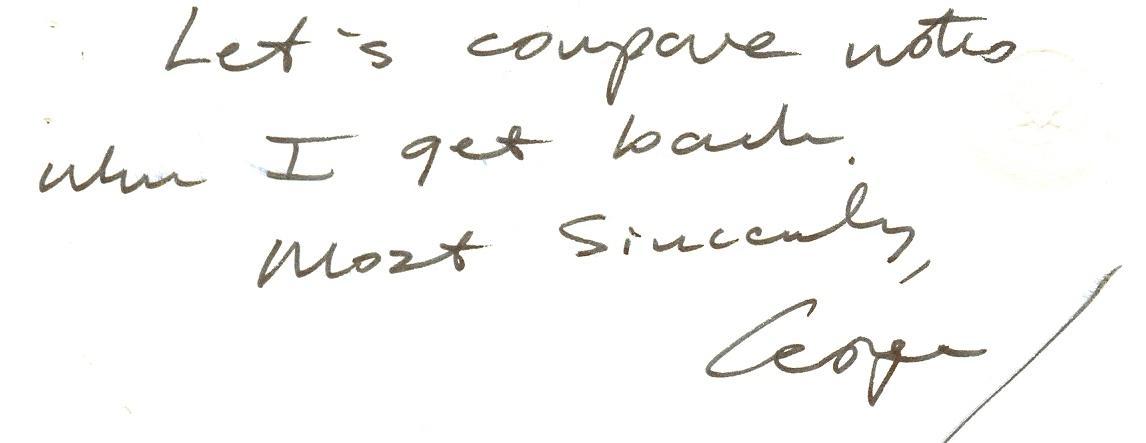 Let's compare notes
when I get back.
Most Sincerely,
George